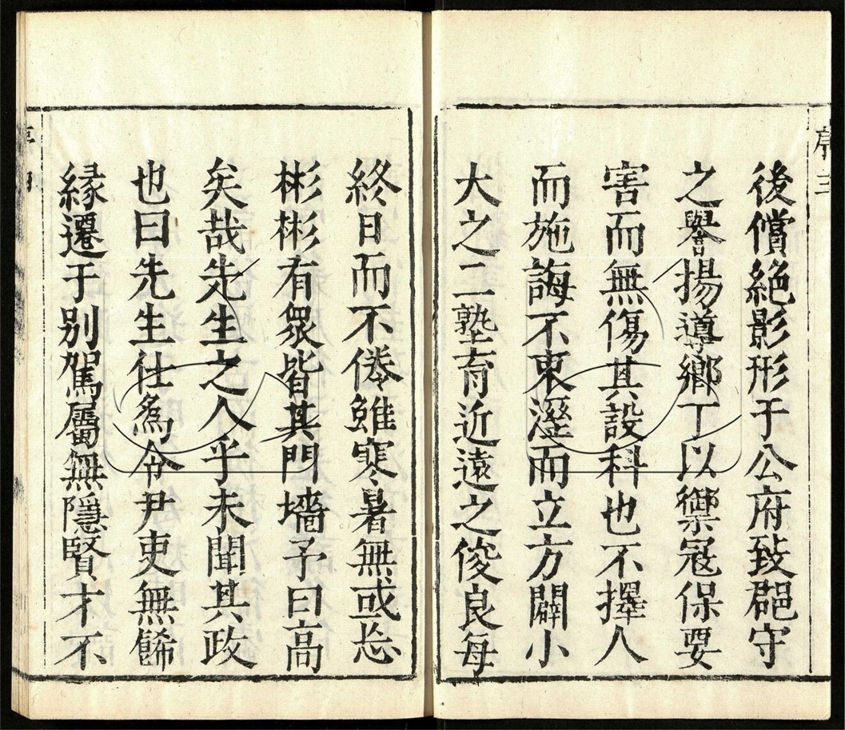 序三
後償絶影形于公府致郡守
之譽揚導鄉丁以禦冦保要
害而無傷其設科也不擇人
而施誨不束溼而立方闢小
大之二塾育近遠之俊良每
終日而不倦雖寒暑無或怂
彬彬有衆皆其門墻予曰高
矣哉先生之人乎未聞其政
也曰先生仕爲令尹吏無餙
緣遷于别駕屬無隱賢才不